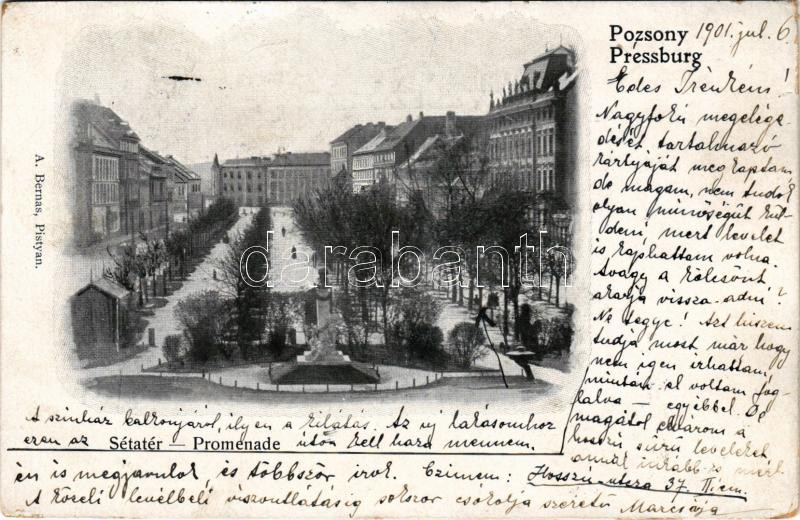 Pozsony 1901. jul. 6
Pressburg
Édes Trénkém!
Nagyfokú megelége-
dését tartalmazó
kártyáját megkaptam
de magam, nem tudok
olyan minőségűt kül-
deni, mert levelet
is kaphattam volna.
Avagy a kölcsönt
akarja vissza-adni?
Ne tegye! Azt hiszem
tudja most már hogy
nem igen irhattam,
mintám el voltam fog-
lalva — egyébbel. De
magától elvárom a
hosszú sűrű leveleket
annál inkább is mert
A. Bernas, Pistyan.
darabanth.com
A szinház balkonjáról, ilyen a kilátás. Az uj lakásomhoz
ezen az Sétatér — Promenade úton kell haza mennem.
én is megjavulok, és többször irok. Czimem: Hosszú-utcza 37. II em.
A közeli levélbeli viszontlátásig sokszor csókolja szerető Marcsája